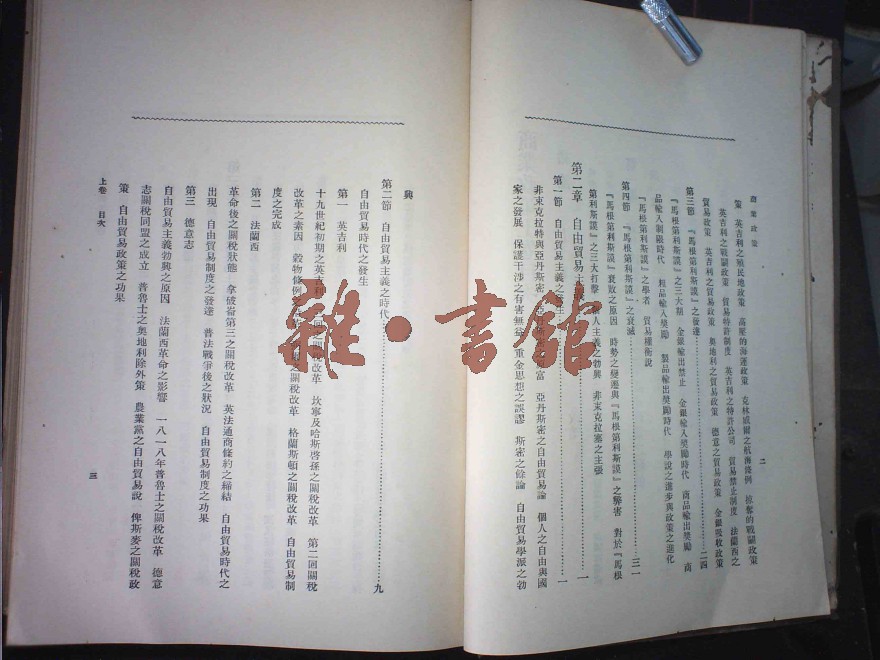 商業政策
二
策 英吉利之殖民地政策 高壓的海運政策 克林威爾之航海條例 掠奪的戰鬭政策
英吉利之戰鬭政策 貿易特許制度 英吉利之特許公司 貿易禁止制度 法蘭西之
貿易政策 英吉利之貿易政策 奧地利之貿易政策 德意之貿易政策 金銀吸收政策
第三節 『馬根第利斯謨』之發達……二四
『馬根第利斯謨』之三大制 金銀輸出禁止 金銀輸入獎勵時代 商品輸出獎勵 商
品輸入制限時代 粗品輸入獎勵 製品輸出獎勵時代 學說之進步與政策之進化
『馬根第利斯謨』之學者 貿易權衡說
第四節 『馬根第利斯謨』之衰滅……三一
『馬根第利斯謨』衰敗之原因 時勢之變遷與『馬根第利斯謨』之弊害 對於『馬根
第利斯謨』之三大打擊 個人主義之勃興 非末克拉塞之主張
第二章 自由貿易主義……一
第一節 自由貿易主義之發生……一
非末克拉特與亞丹斯密 亞丹斯密 富 亞丹斯密之自由貿易論 個人之自由與國
家之發展 保護干涉之有害無益 重金思想之誤謬 斯密之餘論 自由貿易學派之勃
興
第二節 自由貿易主義之時代……九
自由貿易時代之發生
第一 英吉利
十九世紀初期之英吉利 回關稅改革 坎寧及哈斯啓孫之關稅改革 第二回關稅
改革之素因 穀物條例之 之關稅改革 格蘭斯頓之關稅改革 自由貿易制
度之完成
第二 法蘭西
革命後之關稅狀態 拿破崙第三之關稅改革 英法通商條約之締結 自由貿易時代之
出現 自由貿易制度之發達 普法戰爭後之狀況 自由貿易制度之功果
第三 德意志
自由貿易主義勃興之原因 法蘭西革命之影響 一八一八年普魯士之關稅改革 德意
志關稅同盟之成立 普魯士之奧地利除外策 農業黨之自由貿易說 俾斯麥之關稅政
策 自由貿易政策之功果
上卷 目次
三
雜·書館